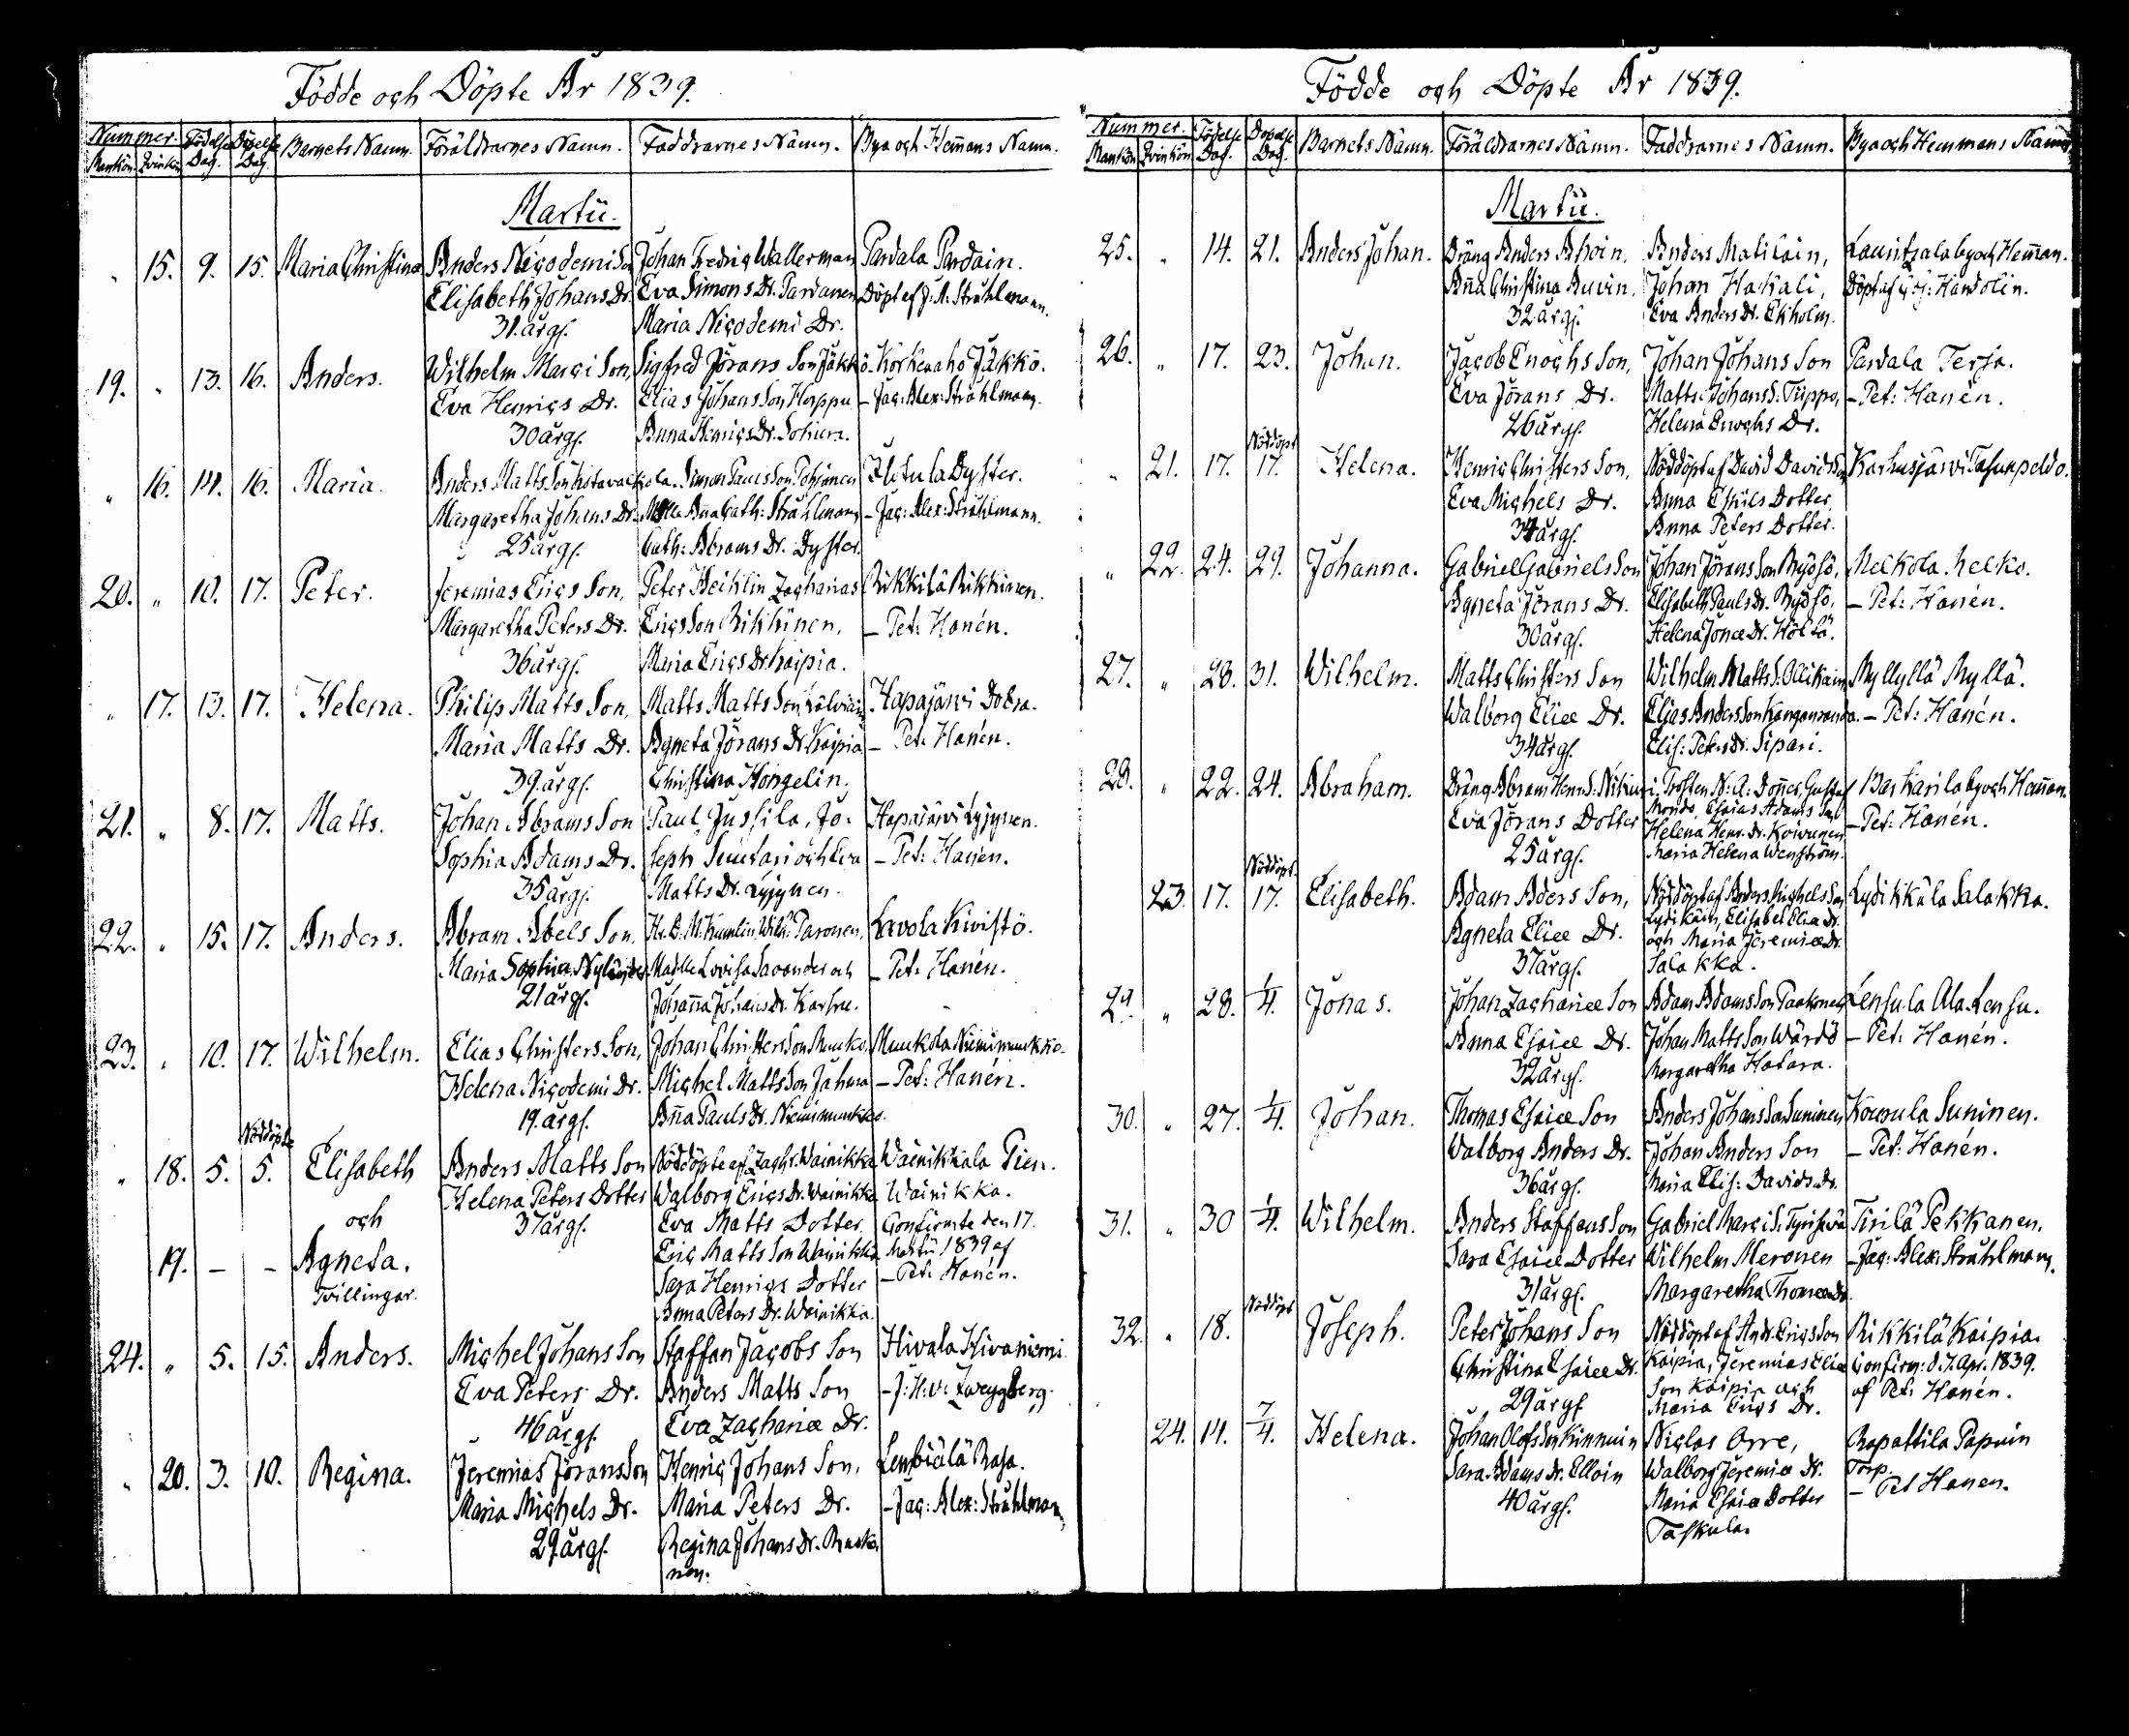 Födde och Döpte År 1839.
Nummer. Födelse Döpelse Barnets Namn. Föräldrarnes Namn. Faddrarnes Namn. Bya och Hemans Namn.
Mankön. Qvinkön. Dag. Dag.
Martii.
" 15. 9. 15. Maria Christina Anders Nicodemi Son Johan Fredric Wallerman Pardala Pardain.
Elisabeth Johans Dr. Eva Simons Dr. Pardanen Döpt af J. A. Stråhlmann.
31 årg. Maria Nicodemi Dr.
19. " 13. 16. Anders. Wilhelm Marci Son, Sigfred Jörans Son Jäkkö Korkeaho Jäkkö.
Eva Henrics Dr. Elias Johans Son Horppu – Jac: Alex: Stråhlmann.
30 årg. Anna Henrics Dr.
" 16. 14. 16. Maria. Anders Matts Son Simon Pauls Son Pohjonen Dyster.
Margaretha Johans Dr. Mlle Aña Cath: Stråhlmann – Jac: Alex: Stråhlmann.
25 årg. Cath: Abrams Dr. Dyster.
20. " 10. 17. Peter. Jeremias Erics Son, Peter Heiklin Zacharias Rikkilä Rikkinen.
Margaretha Peters Dr. Erics Son Rikkinen, – Pet: Hanén.
36 årg. Maria Erics Dr. Kaipia.
" 17. 13. 17. Helena. Philip Matts Son, Matts Matts Son Hapajärvi Dobra.
Maria Matts Dr. Agneta Jörans Dr. Kaipia – Pet: Hanén.
39 årg. Christina Hongelin.
21. " 8. 17. Matts. Johan Abrams Son Paul Jussila, Jo- Hapajärvi Lyjynen.
Sophia Adams Dr. seph Suutari och Eva – Pet: Hanén.
35 årg. Matts Dr. Lyjynen.
22. " 15. 17. Anders. Abram Abels Son, Paronen, Lavola Kivistö.
Maria Sophia Nylander Madlle Lovisa Savander och – Pet: Hanén.
21 årg. Johaña Johans Dr. Karhu.
23. " 10. 17. Wilhelm. Elias Christers Son, Johan Christers Son Munko Muukola Niemimuukko.
Helena Nicodemi Dr. Michel Matts Son Jahma – Pet: Hanén.
19 årg. Aña Pauls Dr. Niemimuukko.
Nöddöpte
" 18. 5. 5. Elisabeth Anders Matts Son Nöddöpte af Zachr. Wainikka Wainikkala Pien
Helena Peters Dotter Walborg Erics Dr. Wainikka Wainikka.
och 37 årg. Eva Matts Dotter. Confirmte den 17.
19. – – Agneta. Eric Matts Son Wainikka Martii 1839 af
Tvillingar. Sara Henrics Dotter – Pet: Hanén.
Anna Peters Dr. Wainikka.
24. " 5. 15. Anders. Michel Johans Son Staffan Jacobs Son Hivala Hivaniemi
Eva Peters Dr. Anders Matts Son – J: H: v: Zweygberg.
46 årg. Eva Zachariæ Dr.
" 20. 3. 10. Regina. Jeremias Jörans Son Henric Johans Son, Lembiälä Rasa.
Maria Michels Dr. Maria Peters Dr. – Jac: Alex: Stråhlmann,
29 årg. Regina Johans Dr. Ruoko
nen.
Födde och Döpte År 1839.
Nummer. Födelse Döpelse Barnets Namn. Föräldrarnes Namn. Faddrarnes Namn. Bya och Hemmans Namn
Mankön Qvinkön Dag. Dag.
Martii.
25. " 14. 21. Anders Johan. Dräng Anders Ahoin, Anders Matilain, Lauritsala by och Heman.
Aña Christina Auvin. Johan Hakali, Döpt af Handolin.
32 årg. Eva Anders Dr. Ekholm.
26. " 17. 23. Johan. Jacob Enochs Son, Johan Johans Son Pardala Terja.
Eva Jörans Dr. Matts Johans S. Tiippo, – Pet: Hanén.
26 årg. Helena Enochs Dr.
Nöddöpt
" 21. 17. 17. Helena. Henric Christers Son, Nöddöpt af David Davids Son Karhusjärvi
Eva Michels Dr. Anna Eskils Dotter
34 årg. Anna Peters Dotter.
" 22. 24. 29. Johanna. Gabriel Gabriels Son Johan Jörans Son Rydsö, Melkola Melko.
Agneta Jörans Dr. Elisabeth Pauls Dr. Rydsö, – Pet: Hanén.
30 årg. Helena Jonæ Dr. Höltä.
27. " 28. 31. Wilhelm. Matts Christers Son Wilhelm Matts S. Ollikain Myllylä Myllä.
Walborg Eliæ Dr. Elias Anders Son Kanganranda. – Pet: Hanén.
34 årg. Elis: Peters Dr. Sipari.
28. " 22. 24. Abraham. Dräng Abram Henr. S. Nikuri. Prosten N: A: Doñer, Gustaf Baskarila by och Heman.
Eva Jörans Dotter Esaias Adams Son – Pet: Hanén.
25 årg. Helena Henr. Dr. Koivunen
Maria Helena Wenström.
Nöddöpt.
23. 17. 17. Elisabeth. Adam Aders Son, Nöddöpt af Anders Michels Son Lydikkälä Salakka.
Agneta Eliæ Dr. Lydikäin, Elisabet Eliæ Dr.
37 årg. och Maria Jeremiæ Dr.
Salakka.
29. " 28. 1/4. Jonas. Johan Zachariæ Son Adam Adams Son Paakonen Lensula Ala Lensu.
Anna Esaiæ Dr. Johan Matts Son Wärdö – Pet: Hanén.
32 årg. Margaretha Hatara.
30. " 27. 1/4. Johan. Thomas Esaiæ Son Anders Johans Son Suninen Kousula Suninen.
Walborg Anders Dr. Johan Anders Son – Pet: Hanén.
36 årg. Maria Elis: Davids Dr.
31. " 30 1/4. Wilhelm. Anders Staffans Son Gabriel Marci S. Tirilä Pekkanen.
Sara Esaiæ Dotter Wilhelm Meronen – Jac: Alex: Stråhlmann.
31 årg. Margaretha Thomæ Dr.
Nöddöpt
32. " 18. Joseph. Peter Johans Son Nöddöpt af And. Erics Son Rikkilä Kaipia.
Christina Esaiæ Dr. Kaipia, Jeremias Eliæ Confirm: d. 7. Apr. 1839.
29 årg Son Kaipia och af Pet: Hanén.
Maria Erics Dr.
24. 14. 7/4. Helena. Johan Olofs Son Kinnuin Niclas Orre, Rapattila Papuin
Sara Adams Dr. Elloin Walborg Jeremiæ Dr. Torp.
40 årg. Maria Esaiæ Dotter – Pet Hanen.
Taskula.